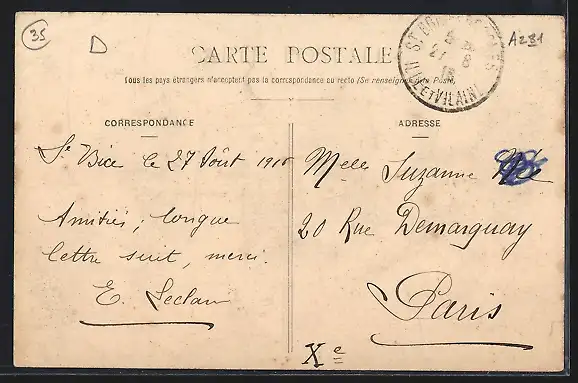 35
D
A231
CARTE POSTALE
Tous les pays étrangers n'acceptent pas la correspondance au recto (Se renseigner à la Poste)
ILLE ET VILAINE
27 8
CORRESPONDANCE
ADRESSE
St Brice le 27 Août
Amitiés, longue
lettre suit, merci.
E.
Melle Suzanne
20 Rue Demarquay
Paris
Xe